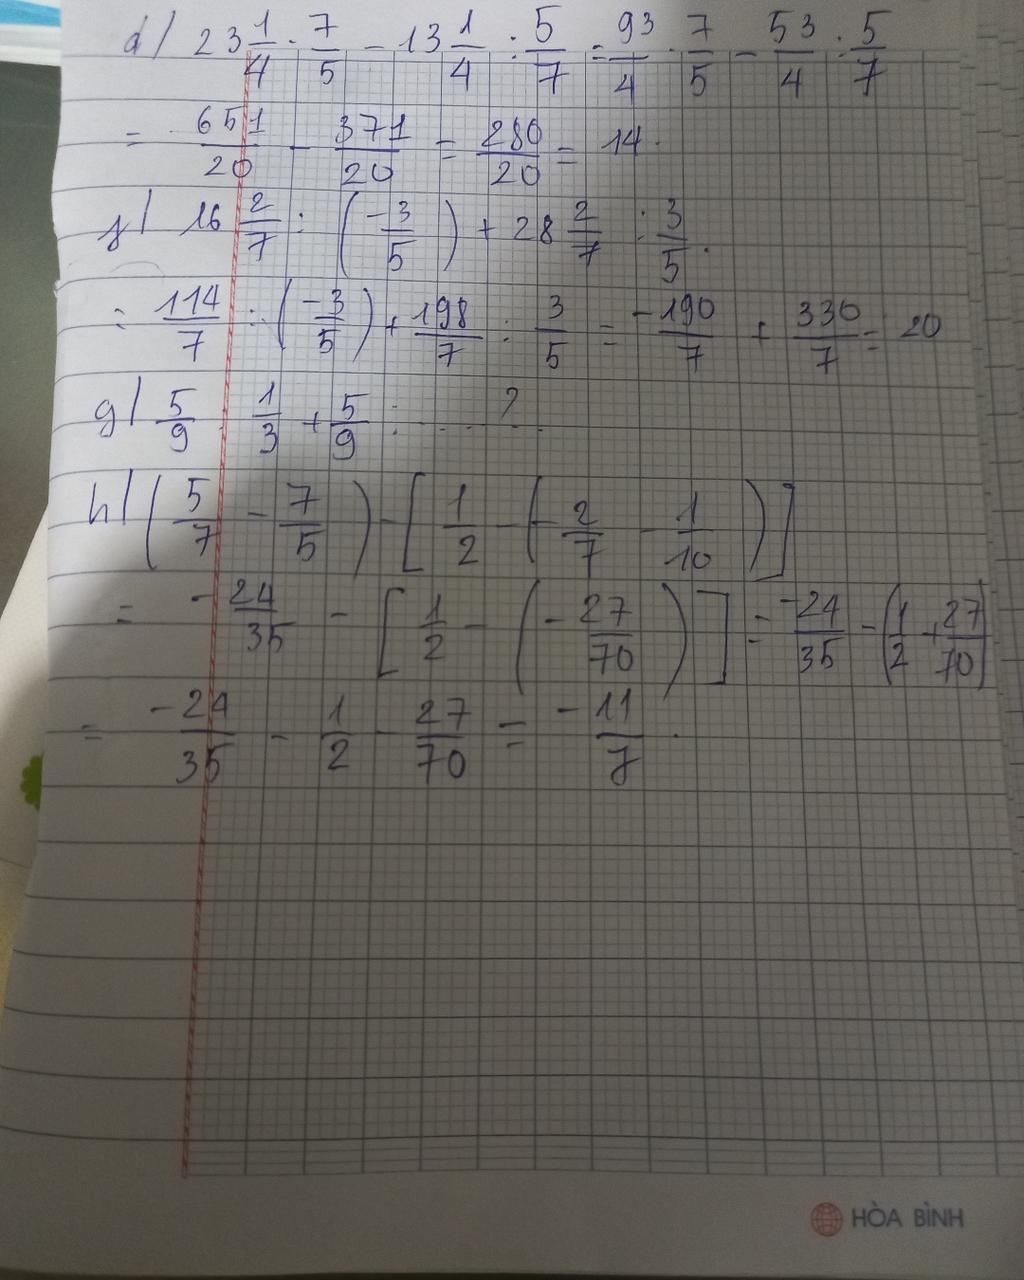 d/ 23 1/4 . 7/5 - 13 1/4 : 5/7 = 93/4 . 7/5 - 53/4 : 5/7
= 651/20 - 371/20 = 280/20 = 14.
f/ 16 2/7 : (-3/5) + 28 2/7 : 3/5.
= 114/7 : (-3/5) + 198/7 : 3/5 = -190/7 + 330/7 = 20
g/ 5/9 . 1/3 + 5/9 : ........ ?
h/ (5/7 - 7/5) - [1/2 - (-2/7 - 1/10)]
= -24/35 - [1/2 - (-27/70)] = -24/35 - (1/2 + 27/70)
= -24/35 - 1/2 - 27/70 = -11/7.
HÒA BÌNH